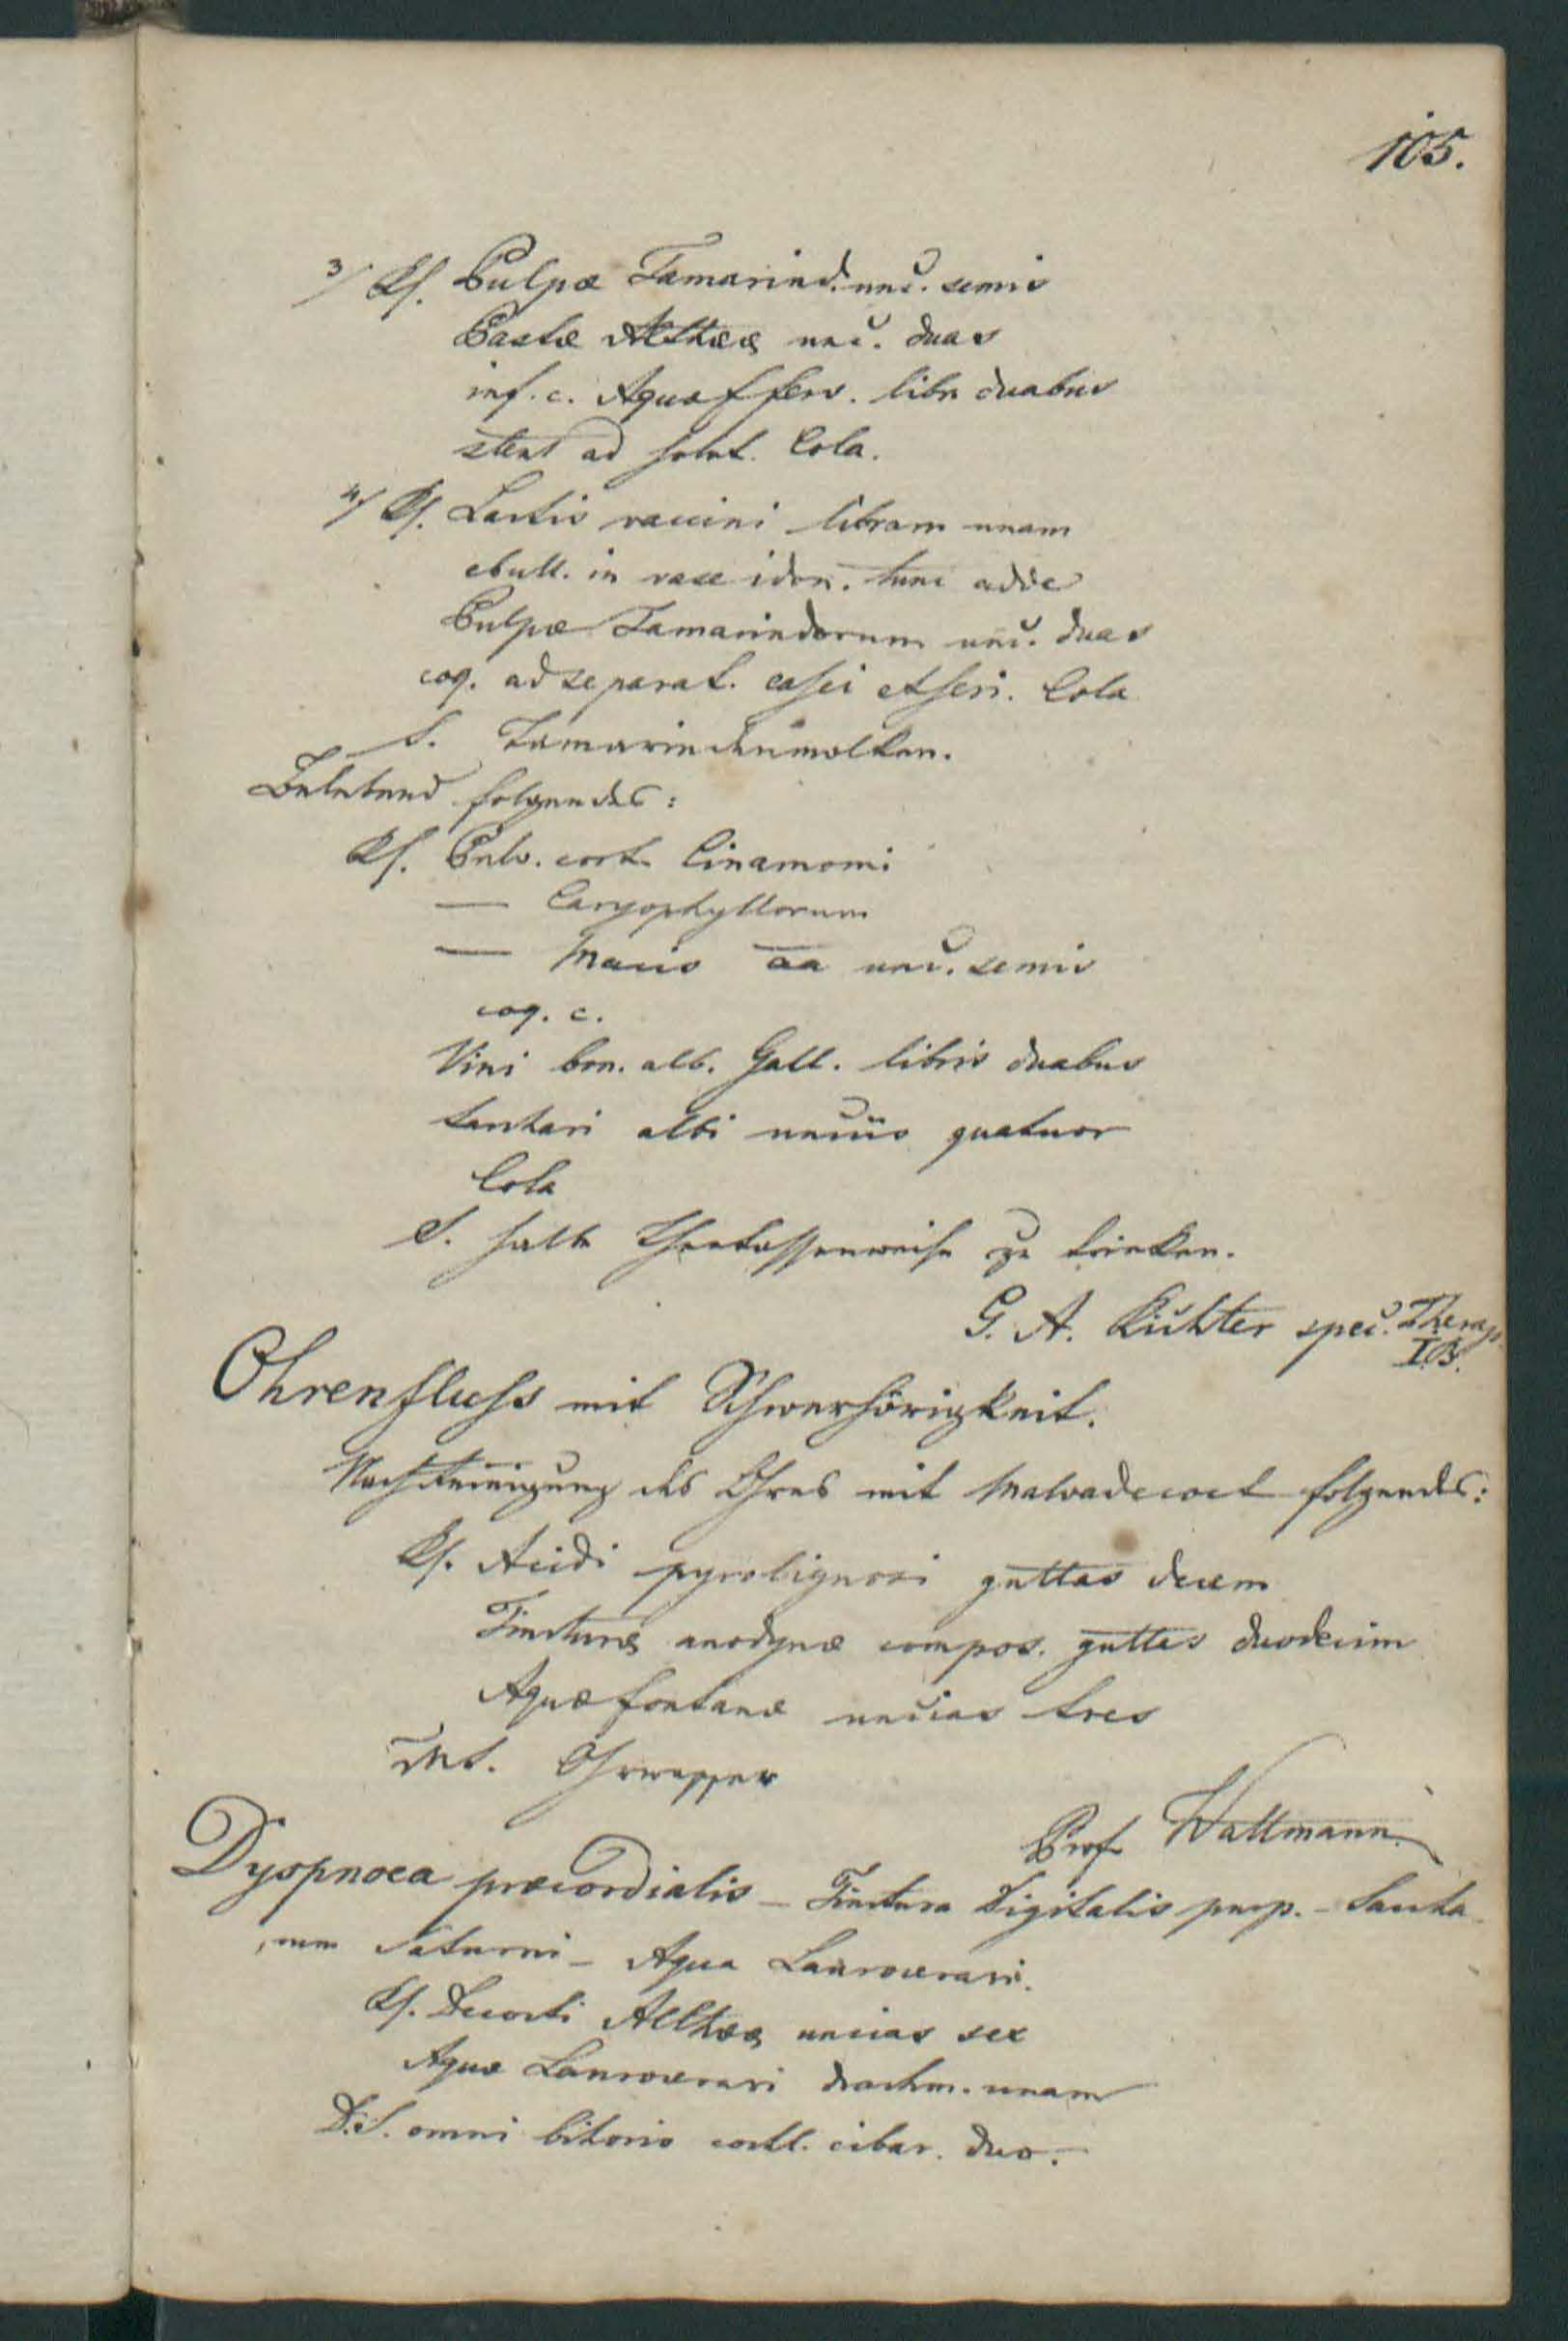 105.
3/ Rf. Pulpæ Tamarind. unc. semis
Pastæ Altheæ unc. duas
inf. c. Aquæ f ferv. libr duabus
stent ad solut. Cola.
4/ Rf. Lactis vaccini libram unam
ebull. in vase idon. tunc adde
Pulpæ Tamarindorum unc. duas
coq. ad separat. casei et seri. Cola
S. Tamarindenmolken.
Belebend folgendes:
Rf. Pulv. cort. Cinamomi
— Caryophyllorum
— Macis aa unc. semis
coq. c.
Vini bon. alb. Gall. libris duabus
Sachari albi unciis quatuor
Cola
S. halbe Theetassenweise zu trinken.
G. A. Richter spec. Therap.
I.B.
Ohrenfluss mit Schwerhörigkeit.
Nach Reinigung des Ohres mit Malvadecoct folgendes:
Rf. Acidi pyrolignosi guttas decem
Tincturæ anodynæ compos. guttas duodecim
Aquæ fontanæ uncias tres
MS. Ohrwasser
Prof. Wattmann.
Dyspnoea præcordialis – Tinctura Digitalis purp. – Sacha
rum Saturni – Aqua Laurocerasi.
Rf. Decocti Altheæ uncias sex
Aquæ Laurocerasi drachm. unam
D.S. omni bihorio cochl. cibar. duo.